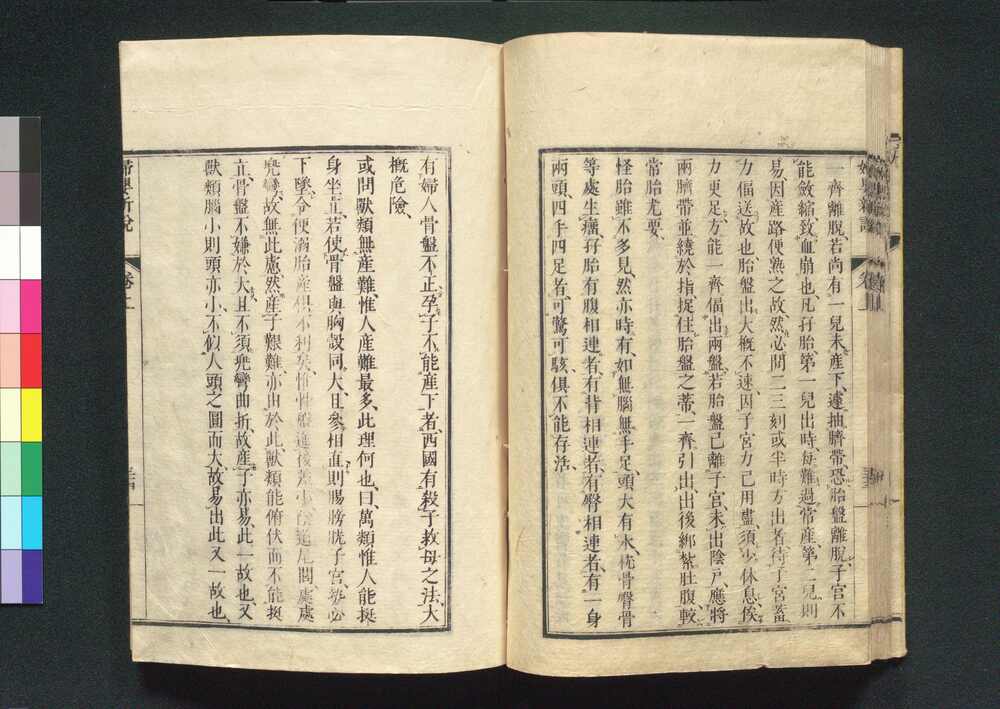 一齊離脫、若尚有一兒未產下、遽抽臍帶、恐胎盤離脫、子宮不
能斂縮、致血崩也、凡孖胎第一兒出時、每難過常產、第二兒則
易、因產路便熟之故、然必間二三刻或半時方出者、待子宮蓄
力偪送故也、胎盤出大概不速、因子宮力已用盡、須少休息、俟
力更足方能一齊偪出兩盤、若胎盤已離子宮、未出陰戶、應將
兩臍帶並繞於指、捉住胎盤之蒂、一齊引出、出後綁紮肚腹、較
常胎尤要、
怪胎雖不多見、然亦時有、如無腦無手足、頭大有水、枕骨臀骨
等處生瘤、孖胎有腹相連者、有背相連者、有臀相連者、有一身
兩頭四手四足者、可驚可駭、俱不能存活、
有婦人骨盤不正、孕子不能產下者、西國有殺子救母之法、大
概危險、
或問獸類無產難、惟人產難最多、此理何也、曰、萬類惟人能挺
身坐立、若使骨盤與胸殼同大、且參相直、則腸膀胱子宮、勢必
下墜、令便溺胎產俱不利矣、惟骨盤
兜彎、故無此慮、然產子艱難、亦由於此、獸類能俯伏而不能挺
立、骨盤不嫌於大、且不須兜彎曲折、故產子亦易、此一故也、又
獸類腦小則頭亦小、不似人頭之圓而大、故易出、此又一故也、
婦嬰新說 卷上